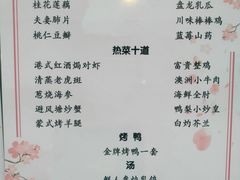 桂花莲藕 盘龙乳瓜
夫妻肺片 川味棒棒鸡
桃仁豆瓣 蓝莓山药
热菜十道
港式红酒焗对虾 富贵整鸡
清蒸老虎斑 澳洲小牛肉
葱烧海参 海鲜全肘
避风塘炒蟹 鸭梨小炒皇
蒙式烤羊腿 白灼芥兰
烤 鸭
金牌烤鸭一套
汤